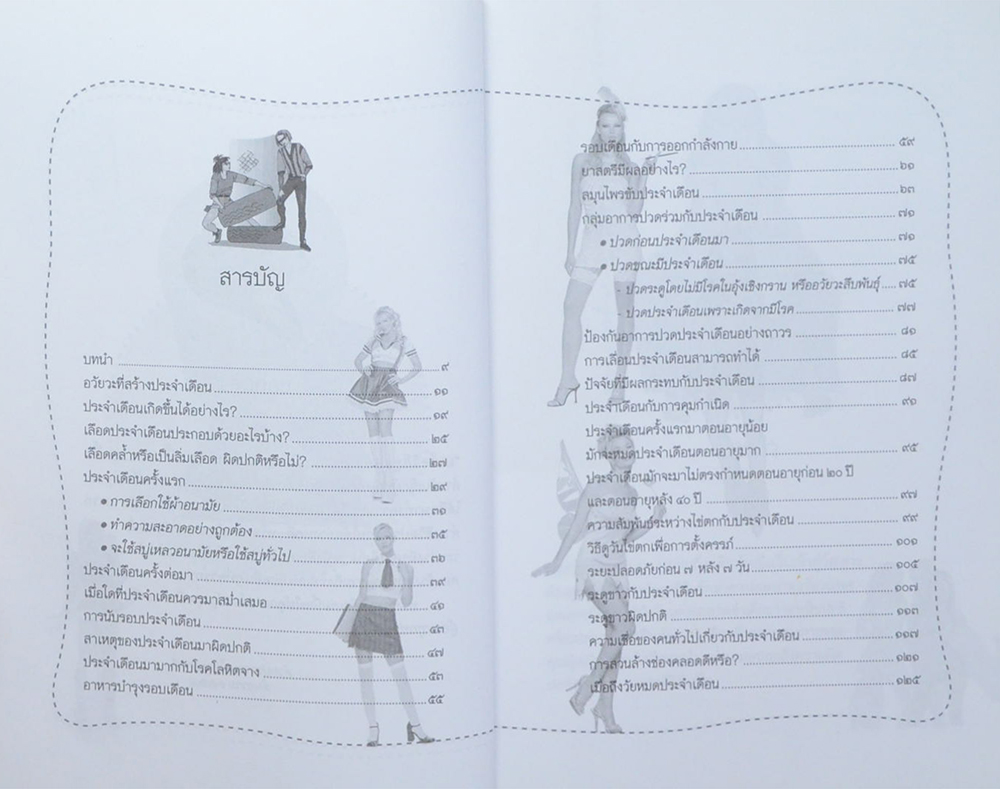 สารบัญ
บทนำ ๙
อวัยวะที่สร้างประจำเดือน ๑๑
ประจำเดือนเกิดขึ้นได้อย่างไร? ๑๙
เลือดประจำเดือนประกอบด้วยอะไรบ้าง? ๒๕
เลือดคล้ำหรือเป็นลิ่มเลือด ผิดปกติหรือไม่? ๒๗
ประจำเดือนครั้งแรก ๒๙
• การเลือกใช้ผ้าอนามัย ๓๑
• ทำความสะอาดอย่างถูกต้อง ๓๕
• จะใช้สบู่เหลวอนามัยหรือใช้สบู่ทั่วไป ๓๖
ประจำเดือนครั้งต่อมา ๓๙
เมื่อใดที่ประจำเดือนควรมาสม่ำเสมอ ๔๑
การนับรอบประจำเดือน ๔๓
สาเหตุของประจำเดือนมาผิดปกติ ๔๗
ประจำเดือนมามากกับโรคโลหิตจาง ๕๓
อาหารบำรุงรอบเดือน ๕๕
รอบเดือนกับการออกกำลังกาย ๕๙
ยาสตรีมีผลอย่างไร? ๖๑
สมุนไพรขับประจำเดือน ๖๓
กลุ่มอาการปวดร่วมกับประจำเดือน ๗๑
• ปวดก่อนประจำเดือนมา ๗๑
• ปวดขณะมีประจำเดือน ๗๕
- ปวดระดูโดยไม่มีโรคในอุ้งเชิงกราน หรืออวัยวะสืบพันธุ์ ๗๕
- ปวดประจำเดือนเพราะเกิดจากมีโรค ๗๗
ป้องกันอาการปวดประจำเดือนอย่างถาวร ๘๑
การเลื่อนประจำเดือนสามารถทำได้ ๘๕
ปัจจัยที่มีผลกระทบกับประจำเดือน ๘๗
ประจำเดือนกับการคุมกำเนิด ๙๑
ประจำเดือนครั้งแรกมาตอนอายุน้อย
มักจะหมดประจำเดือนตอนอายุมาก ๙๕
ประจำเดือนมักจะมาไม่ตรงกำหนดตอนอายุก่อน ๒๐ ปี
และตอนอายุหลัง ๔๐ ปี ๙๗
ความสัมพันธ์ระหว่างไข่ตกกับประจำเดือน ๙๙
วิธีดูวันไข่ตกเพื่อการตั้งครรภ์ ๑๐๑
ระยะปลอดภัยก่อน ๗ หลัง ๗ วัน ๑๐๕
ระดูขาวกับประจำเดือน ๑๐๗
ระดูขาวผิดปกติ ๑๑๓
ความเชื่อของคนทั่วไปเกี่ยวกับประจำเดือน ๑๑๗
การสวนล้างช่องคลอดดีหรือ? ๑๒๑
เมื่อถึงวัยหมดประจำเดือน ๑๒๕